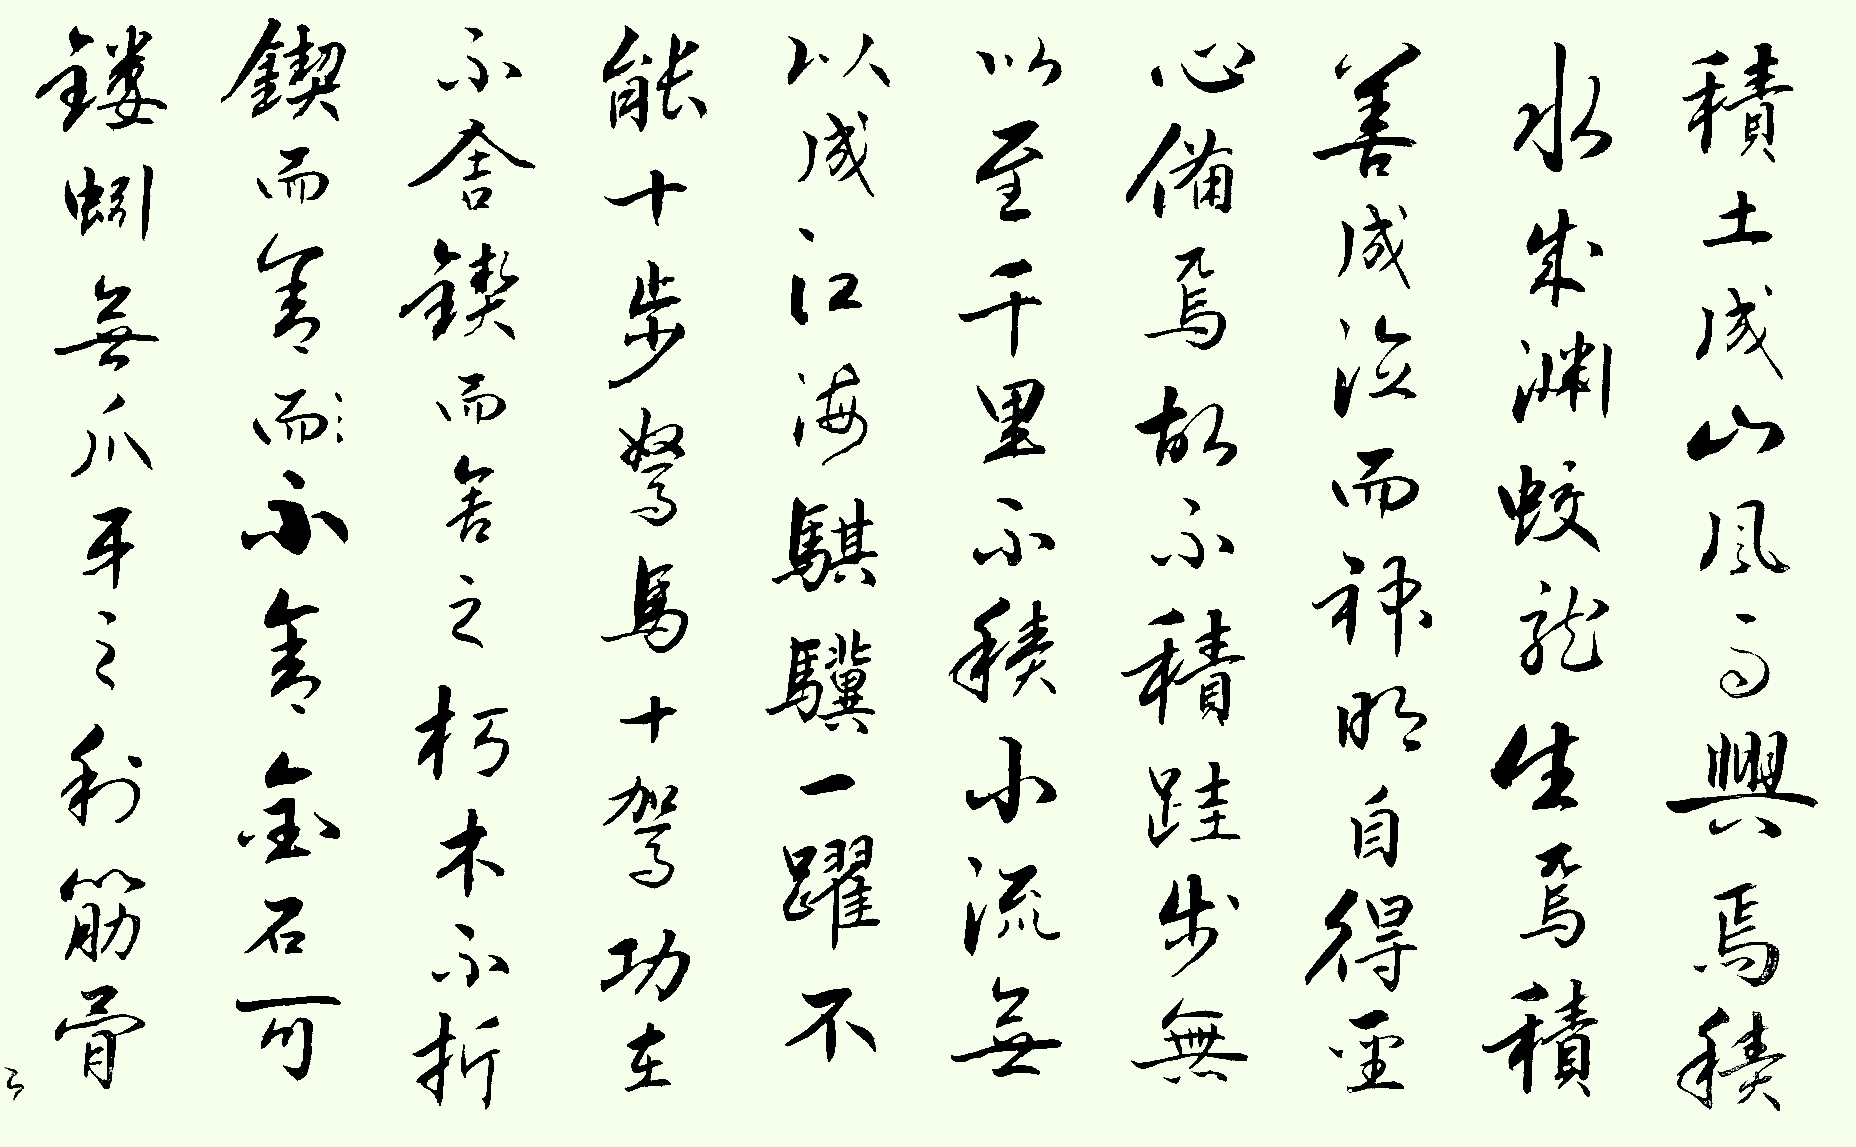 積土成山風雨興焉積
水成淵蛟龍生焉積
善成德而神明自得聖
心備焉故不積跬步無
以至千里不積小流無
以成江海騏驥一躍不
能十步駑馬十駕功在
不舍鍥而舍之朽木不折
鍥而舍而不舍金石可
鏤蚓無爪牙之利筋骨